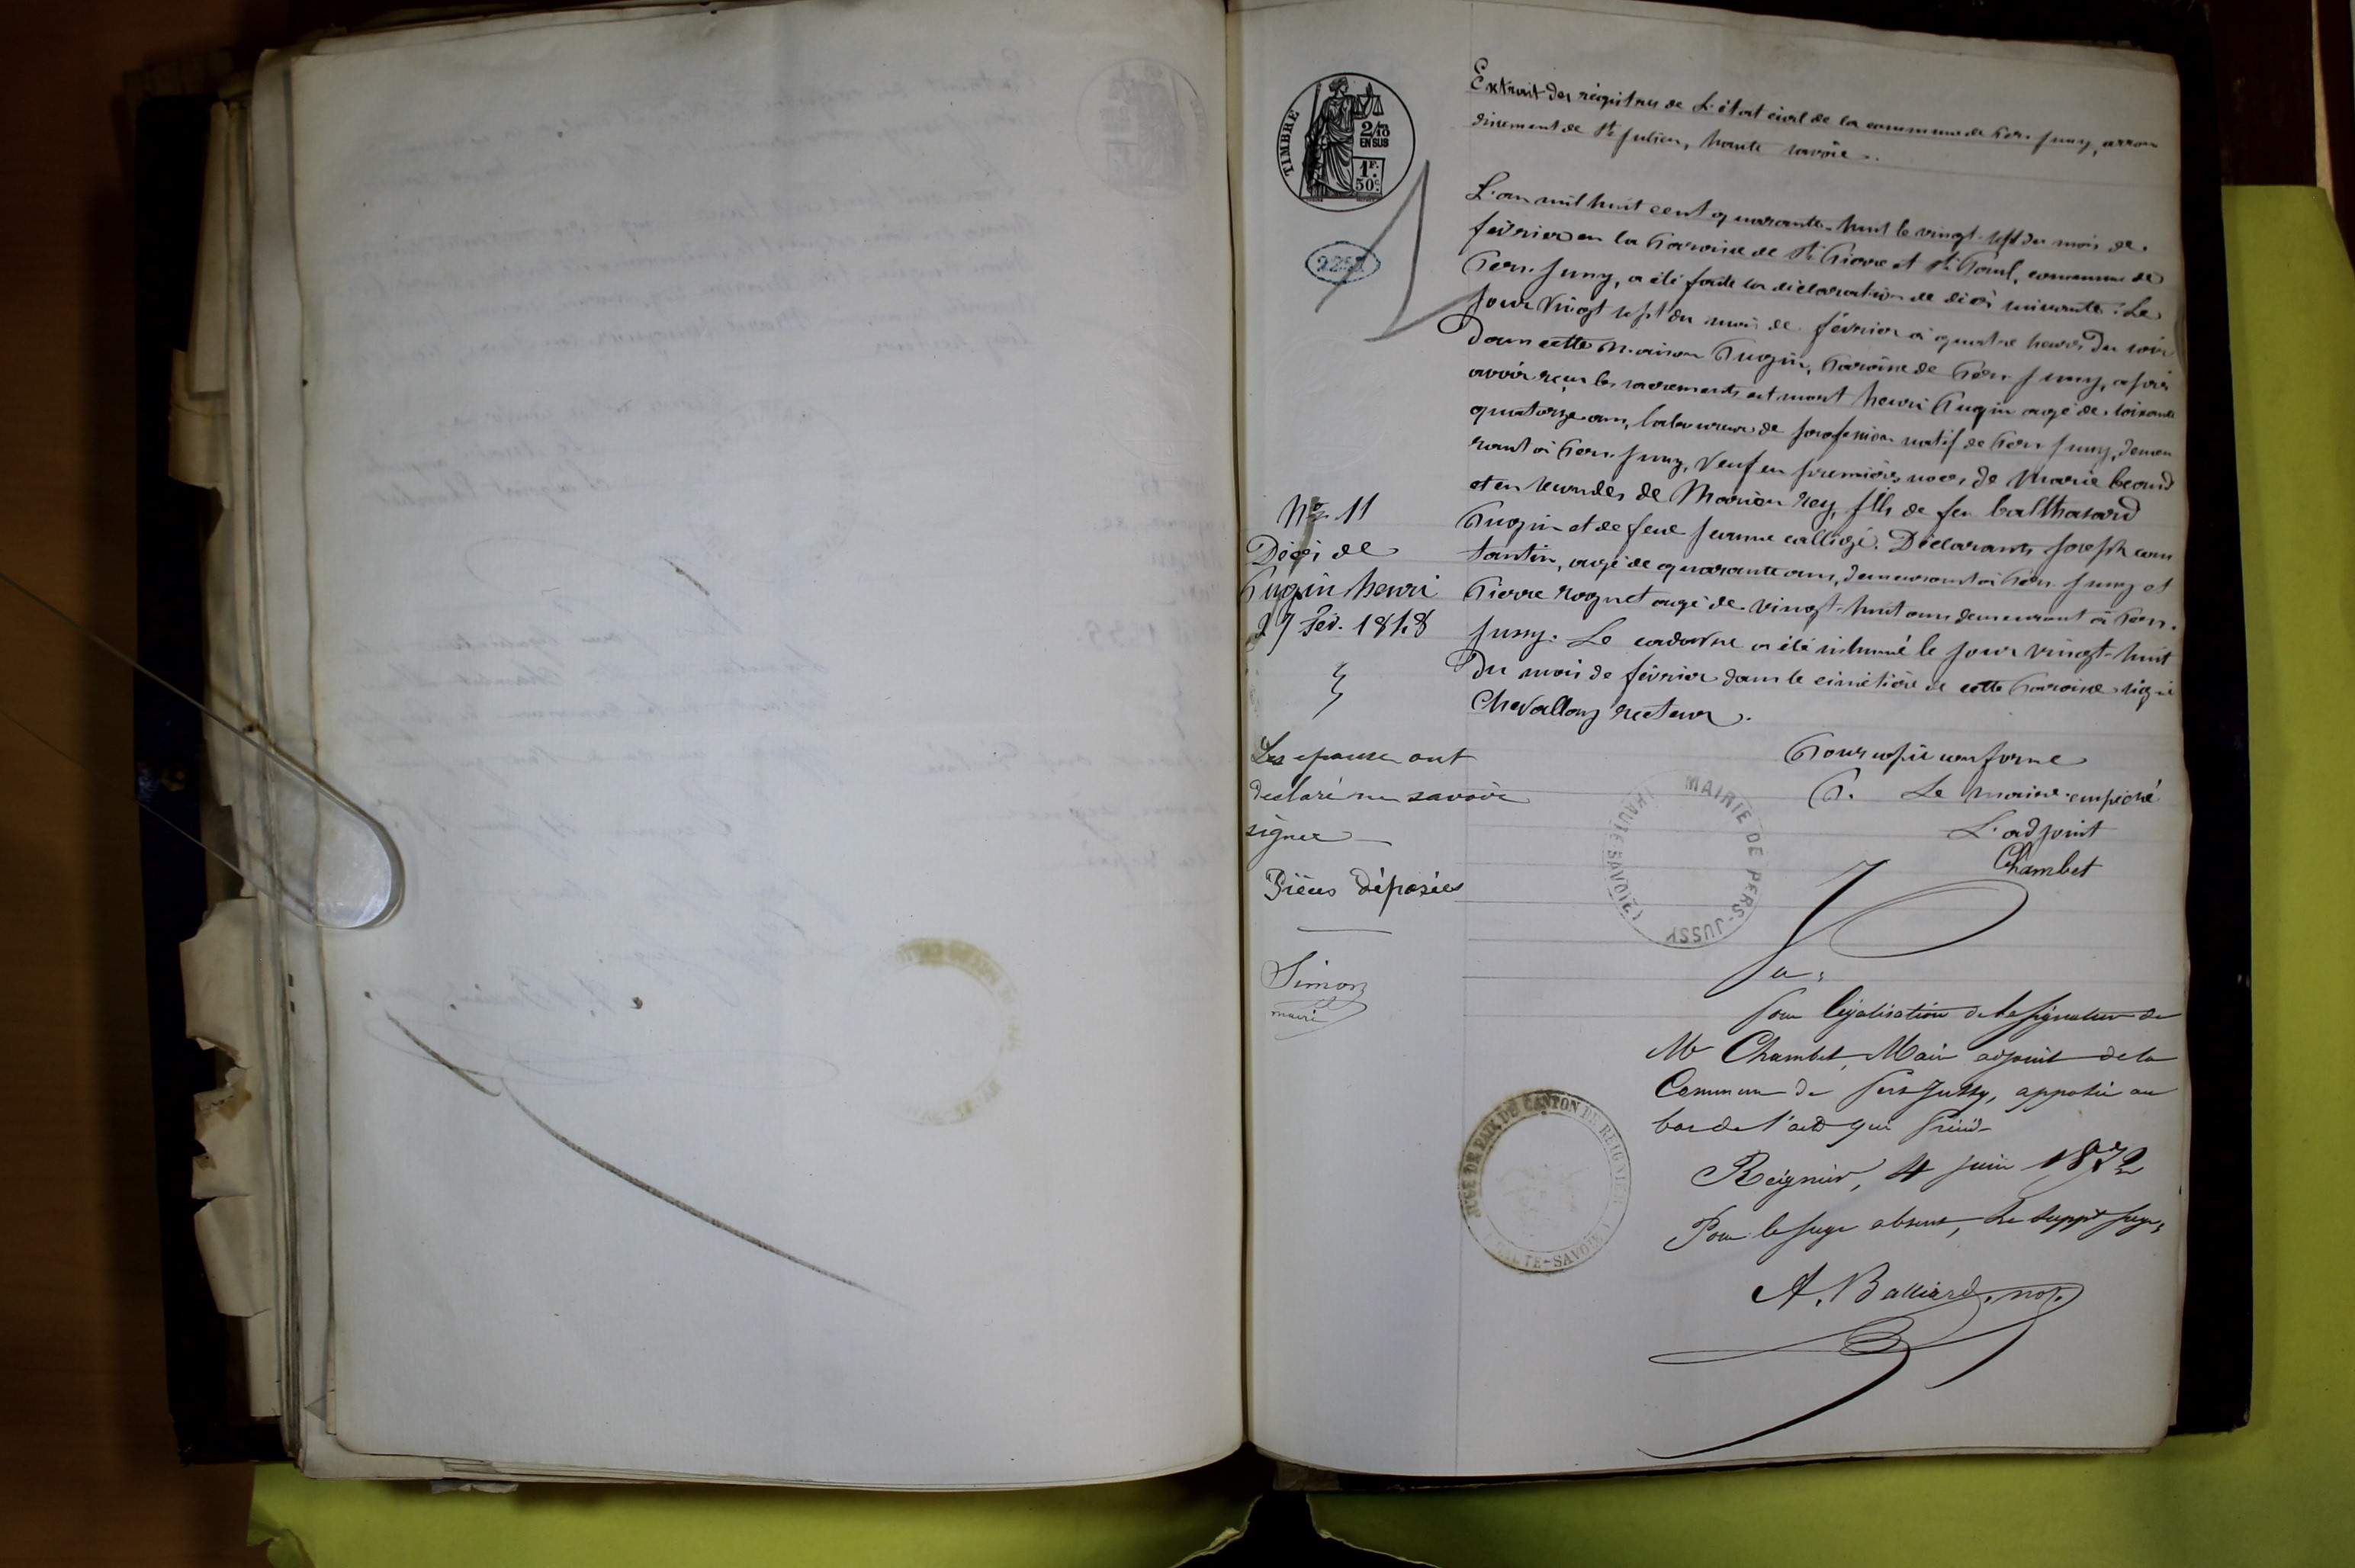 TIMBRE
2/10
EN SUS
1F.
50c.
2253
Extrait des régistres de L'état civil de la commune de Pers-Jussy, arron
dissement de St Julien, haute savoie.
L'an mil huit cent quarante-huit le vingt-sept du mois de
février en la Paroisse de St Pierre et St Paul, commune de
Pers-Jussy, a été faite la déclaration de décès suivante: Le
jour vingt sept du mois de février à quatre heures du soir
Dans cette maison Pugin, Paroisse de Pers-Jussy, après
avoir reçu les sacrements est mort henri Pugin agé de soixante
quatorze ans, laboureur de profession natif de Pers-Jussy, demeu
rant à Pers-Jussy, Veuf en premières noces de Marie
et en secondes de Marion rey, fils de feu balthasard
Pugin et de feue jeanne Déclarants joseph cons
tantin, agé de quarante ans, demeurant à Pers-Jussy et
Pierre roguet agé de vingt-huit ans demeurant à Pers-
Jussy. Le cadavre a été inhumé le jour vingt-huit
Du mois de février dans le cimétière de cette Paroisse signé
Chevallay recteur.
No 11
Décès de
Pugin henri
27 Fév. 1848
Les epoux ont
declaré ne savoir
signer
Pièces déposées
Simon
maire
Pour copie conforme
P. Le maire empêché
L'adjoint
Chambet
MAIRIE DE PERS-JUSSY
(HAUTE-SAVOIE)
Vu,
Pour légalisation de la signature de
Mr Chambet, Maire adjoint de la
Commune de Pers Jussy, apposée au
bas de l'acte qui précède
Reignier, 4 juin 1872
Pour le juge absent, Le suppt juge,
A. Balliard, not.
JUGE DE PAIX DU CANTON DE REIGNIER
HAUTE-SAVOIE